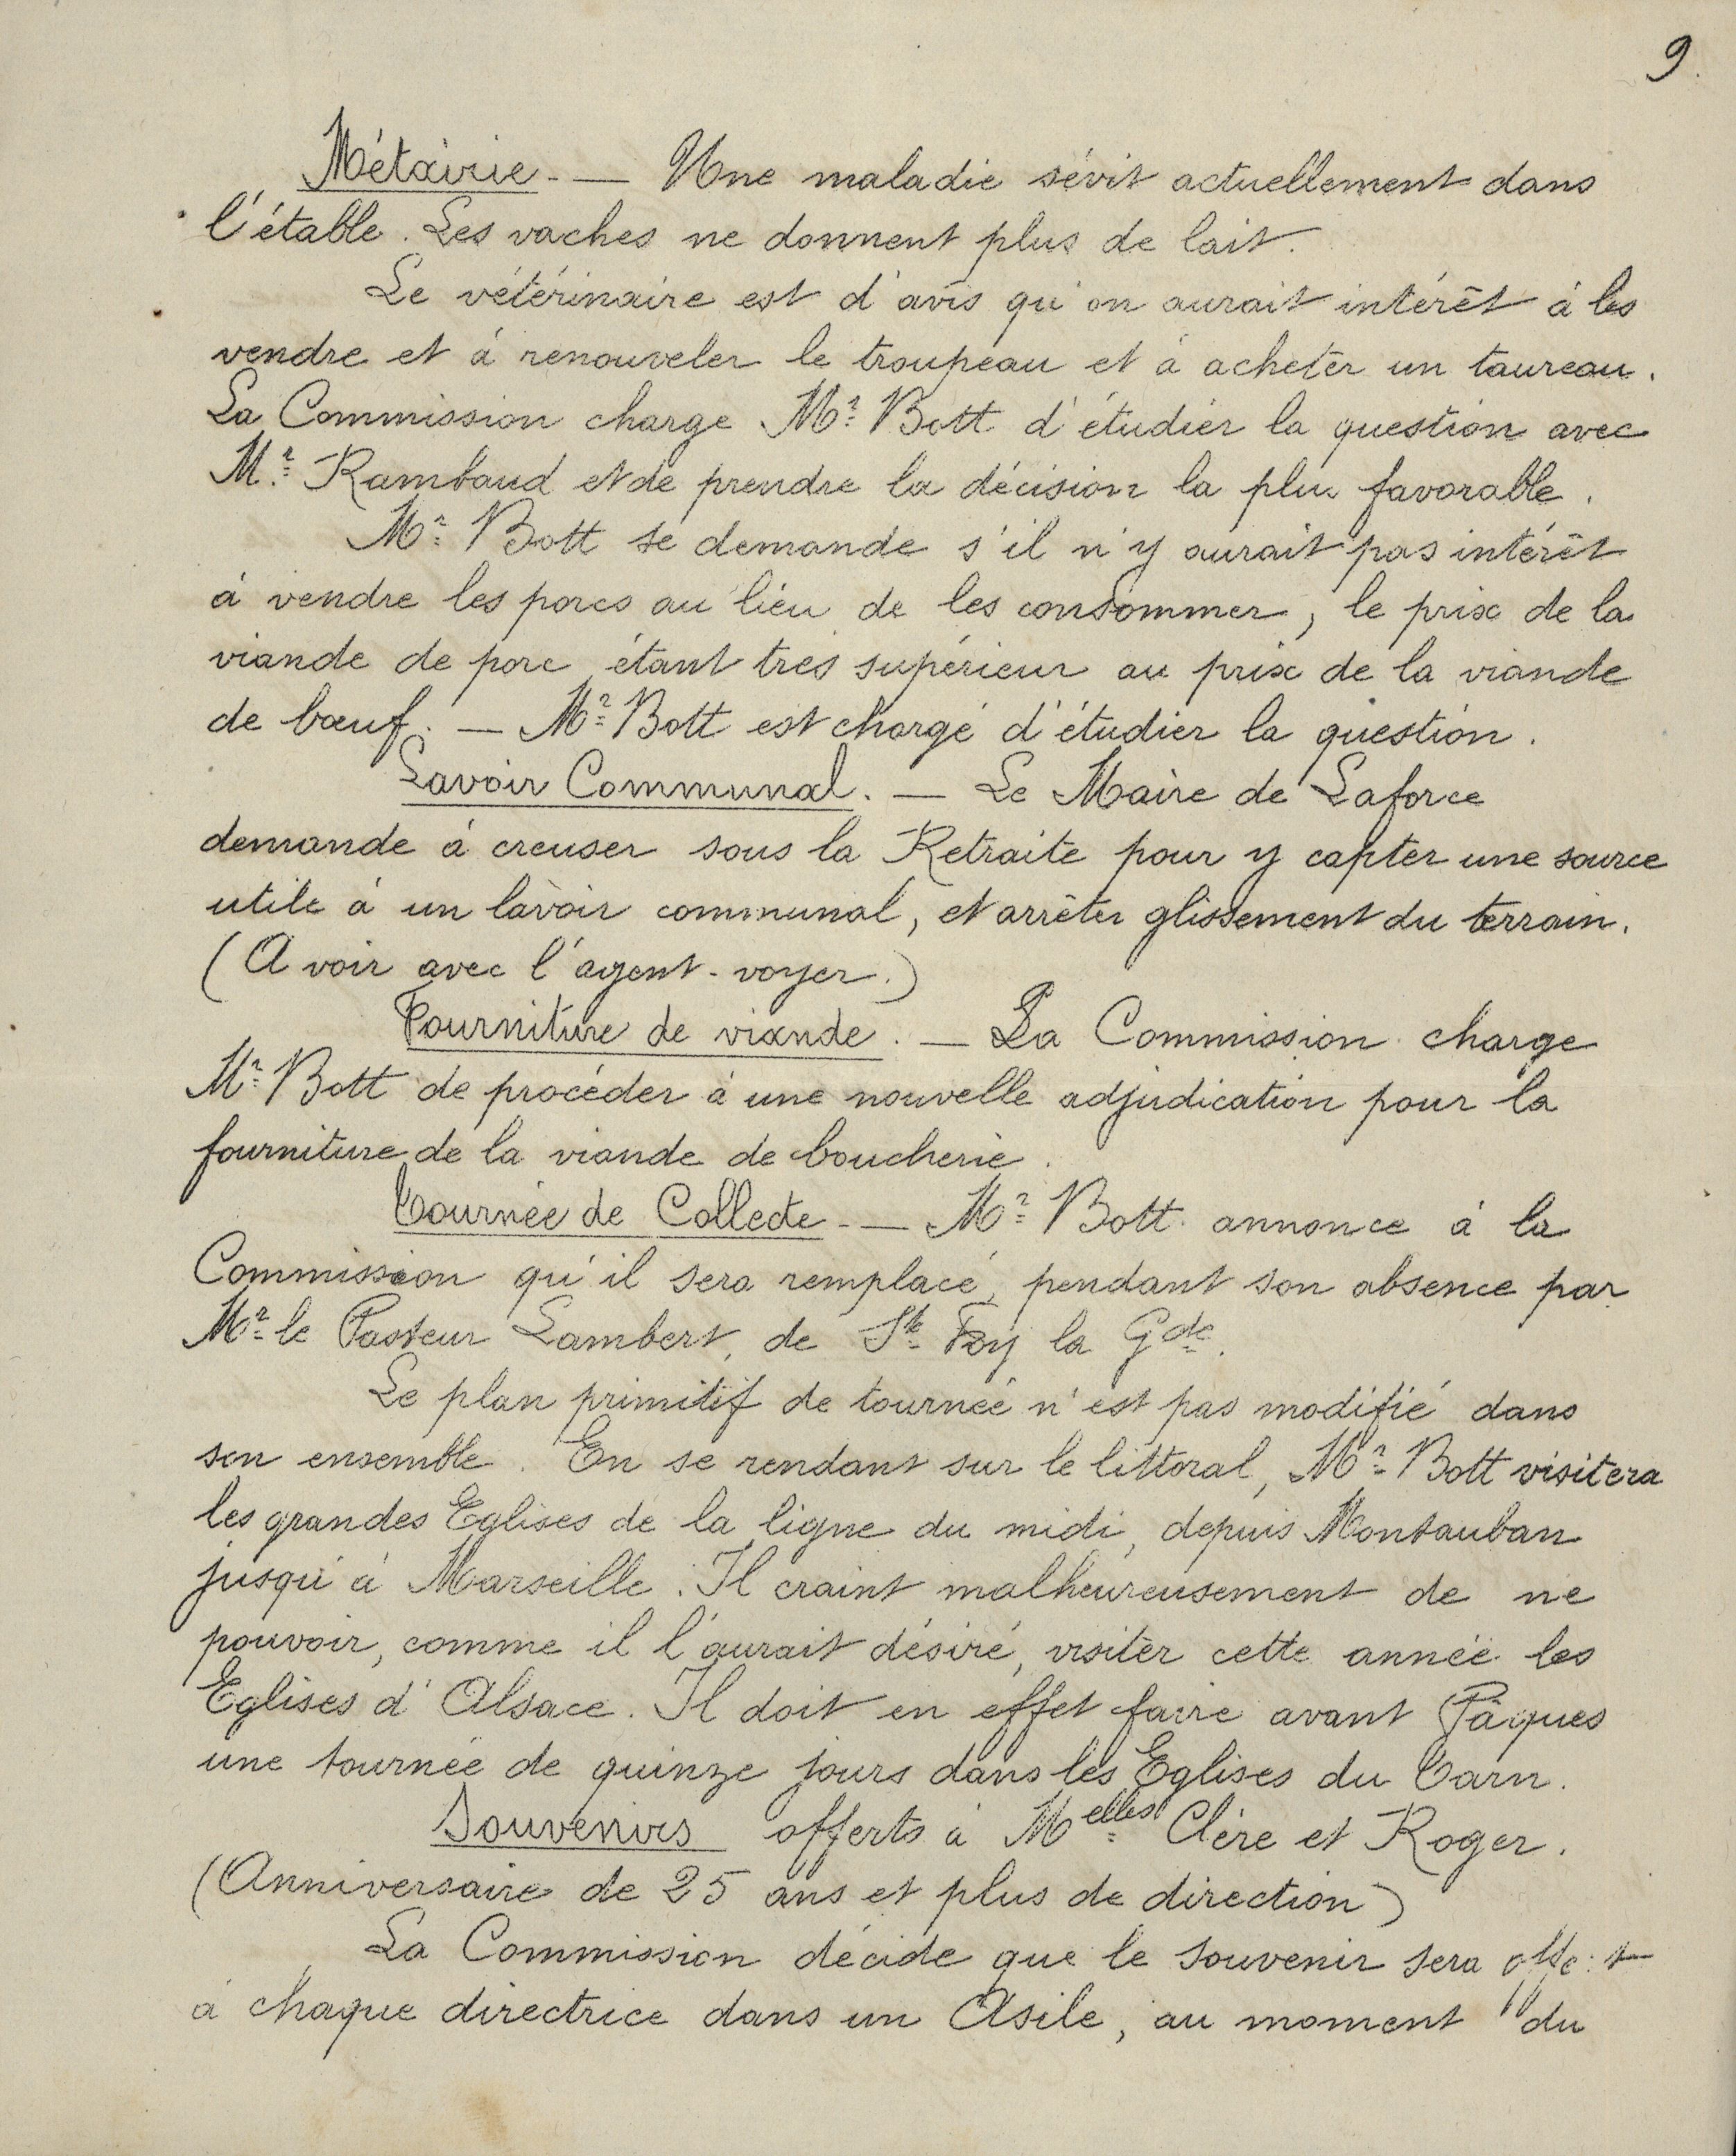 9.
Métairie. — Une maladie sévit actuellement dans
l'étable. Les vaches ne donnent plus de lait.
Le vétérinaire est d'avis qu'on aurait intérêt à les
vendre et à renouveler le troupeau et à acheter un taureau.
La Commission charge Mr. Bott d'étudier la question avec
Mr. Rambaud et de prendre la décision la plus favorable.
Mr. Bott se demande s'il n'y aurait pas intérêt
à vendre les porcs au lieu de les consommer, le prix de la
viande de porc étant très supérieur au prix de la viande
de bœuf. — Mr. Bott est chargé d'étudier la question.
Lavoir Communal. — Le Maire de Laforce
demande à creuser sous la Retraite pour y capter une source
utile à un lavoir communal, et arrêter glissement du terrain.
(A voir avec l'agent-voyer.)
Fourniture de viande. — La Commission charge
Mr. Bott de procéder à une nouvelle adjudication pour la
fourniture de la viande de boucherie.
Tournée de Collecte. — Mr. Bott annonce à la
Commission qu'il sera remplacé, pendant son absence par
Mr. le Pasteur Lambert, de Ste Foy la Gde.
Le plan primitif de tournée n'est pas modifié dans
son ensemble. En se rendant sur le littoral, Mr. Bott visitera
les grandes Eglises de la ligne du midi, depuis Montauban
jusqu'à Marseille. Il craint malheureusement de ne
pouvoir, comme il l'aurait désiré, visiter cette année les
Eglises d'Alsace. Il doit en effet faire avant Pâques
une tournée de quinze jours dans les Eglises du Tarn.
Souvenirs offerts à Melles Clère et Roger.
(Anniversaire de 25 ans et plus de direction)
La Commission décide que le souvenir sera offert
à chaque directrice dans un Asile, au moment du